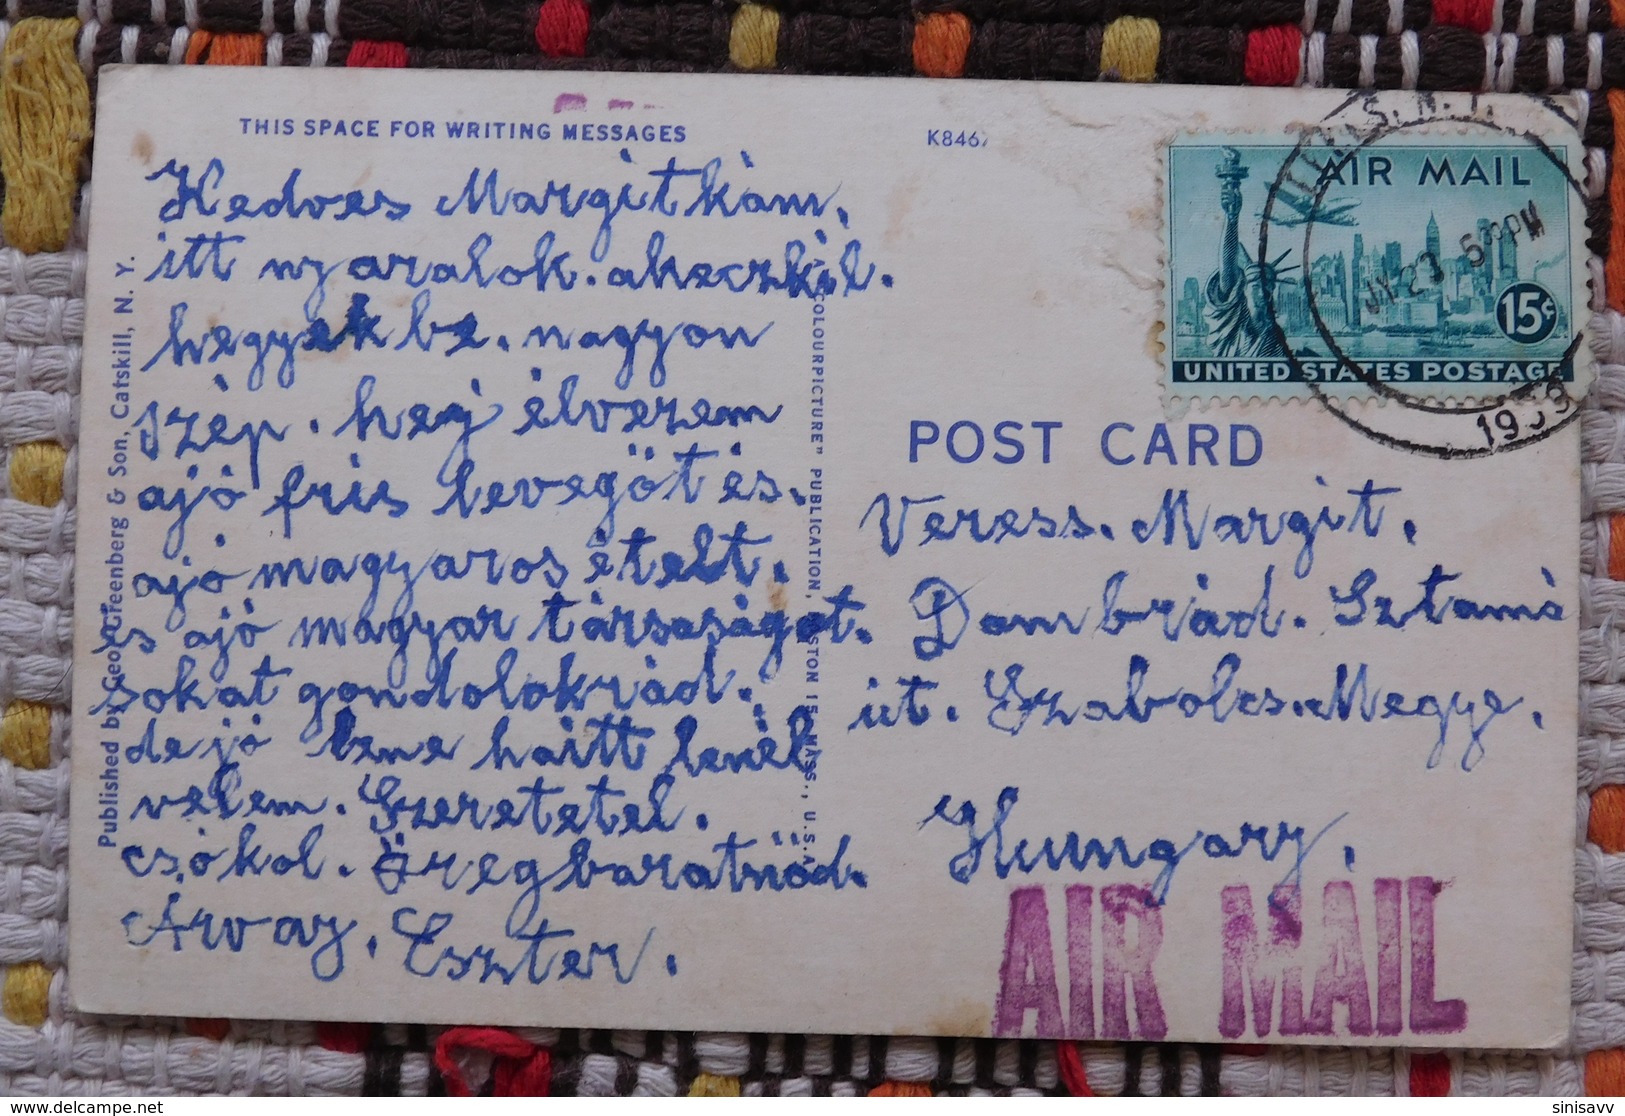 THIS SPACE FOR WRITING MESSAGES
K846
Kedves Margitkám,
itt nyaralok. a keczkil.
hegyekbe. nagyon
szép. hej élvezem
ajó fris levegőt és.
ajó magyaros ételt.
és ajó magyar társaságot.
sokat gondolokrád.
de jó lene haitt lenél
velem. Szeretetel.
csókol. öregbaratnőd.
Árvay. Eszter.
Published by Geo. Greenberg & Son, Catskill, N. Y.
COLOURPICTURE" PUBLICATION, BOSTON 15, MASS., U.S.A.
AIR MAIL
15¢
UNITED STATES POSTAGE
5 PM
1959
POST CARD
Veress. Margit.
Dombrád. Sztamá
út. Szabolcs. Megye.
Hungary.
AIR MAIL
sinisavv